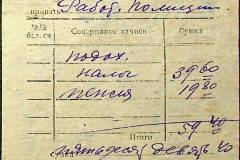 принять Работ. Полиции
№№ Содержание записи Сумма
бал. сч.
подох.
налог 39 60
пенсия 19 80
Итого 59 40
пятьдесят девять 40